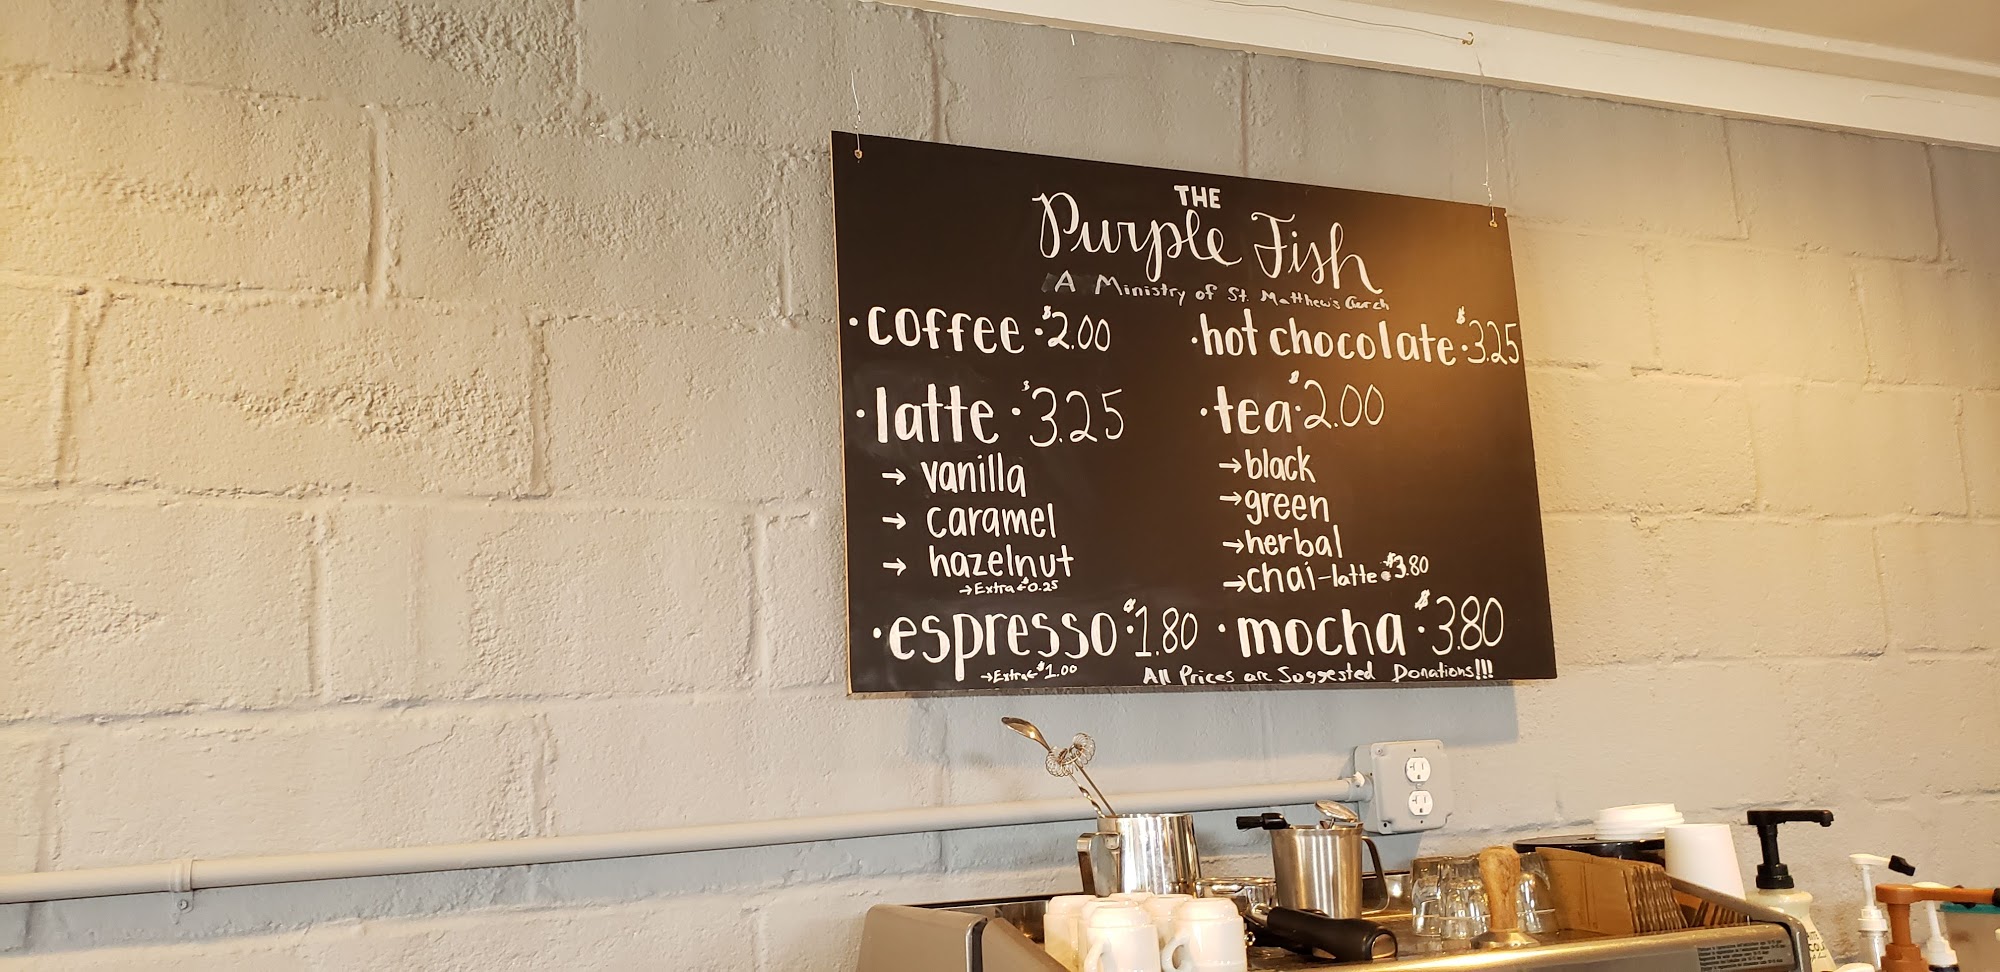 THE
Purple Fish
A Ministry of St. Matthew's Church
· coffee · $2.00
· latte · $3.25
→ vanilla
→ caramel
→ hazelnut
→ Extra · $0.25
· espresso · $1.80
→ Extra · $1.00
· hot chocolate · $3.25
· tea · $2.00
→ black
→ green
→ herbal
→ chai-latte · $3.80
· mocha · $3.80
All Prices are Suggested Donations!!!